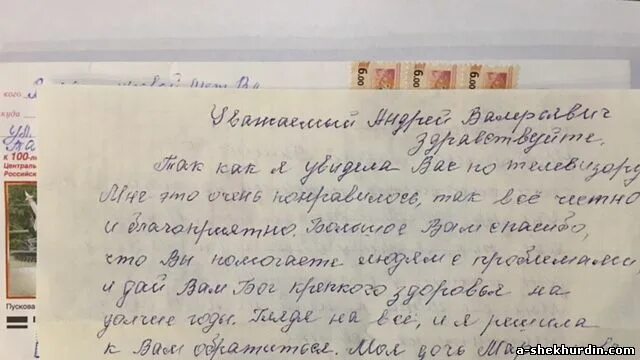 6.00 6.00 6.00
кого
куда
к 100-ле
Центральн
Российск
Пускова
Уважаемый Андрей Валерьевич
здравствуйте.
Так как я увидела Вас по телевизору
Мне это очень понравилось, так всё честно
и благоприятно. Большое Вам спасибо,
что Вы помогаете людям с проблемами
и дай Вам Бог крепкого здоровья на
долгие годы. Глядя на всё, и я решила
к Вам обратиться. Моя дочь
a-shekhurdin.com